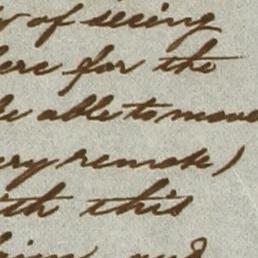 of seeing
ere for the
le able to move
ery remote)
ith this
and